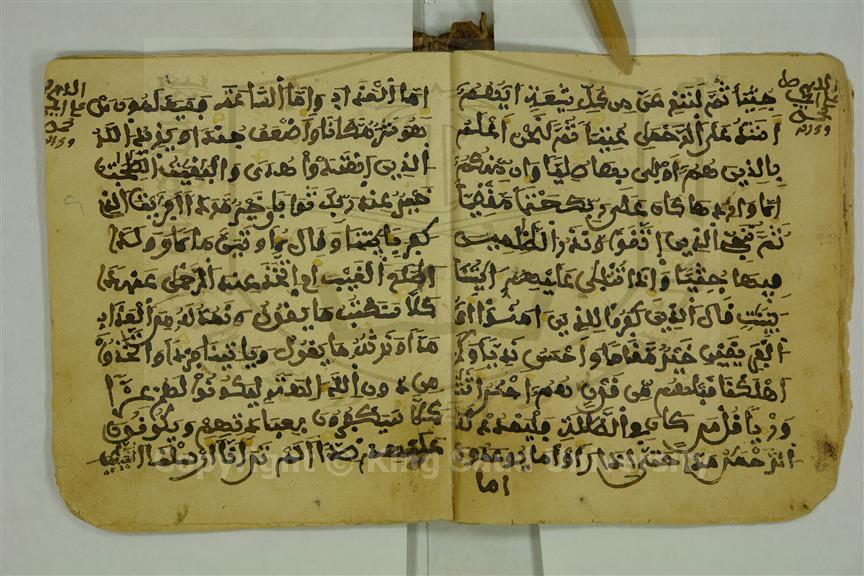 جثيا ثم لننزعن من كل شيعة ايهم
اشد على الرحمن عتيا ثم لنحن اعلم
بالذين هم اولى بها صليا وان منكم
الا واردها كان على ربك حتما مقضيا
ثم ننجي الذين اتقوا ونذر الظلمين
فيها جثيا واذا تتلى عليهم ايتنا
بينت قال الذين كفروا للذين امنوا اي
الفريقين خير مقاما واحسن نديا وكم
اهلكنا قبلهم من قرن هم احسن اثثا
وريا قل من كان في الضللة فليمدد له
الرحمن مدا حتى اذا راوا ما يوعدون
اما
اما العذاب واما الساعة فسيعلمون من
هو شر مكانا واضعف جندا ويزيد الله
الذين اهتدوا هدى والبقيت الصلحت
خير عند ربك ثوابا وخير مردا افريت الذي
كفر بايتنا وقال لاوتين مالا وولدا
اطلع الغيب ام اتخذ عند الرحمن عهدا
كلا سنكتب ما يقول ونمد له من العذاب
مدا ونرثه ما يقول وياتينا فردا واتخذوا
من دون الله الهة ليكونوا لهم عزا
كلا سيكفرون بعبادتهم ويكونون
عليهم ضدا الم تر انا ارسلنا الشيطين
Copyright © King Saud University